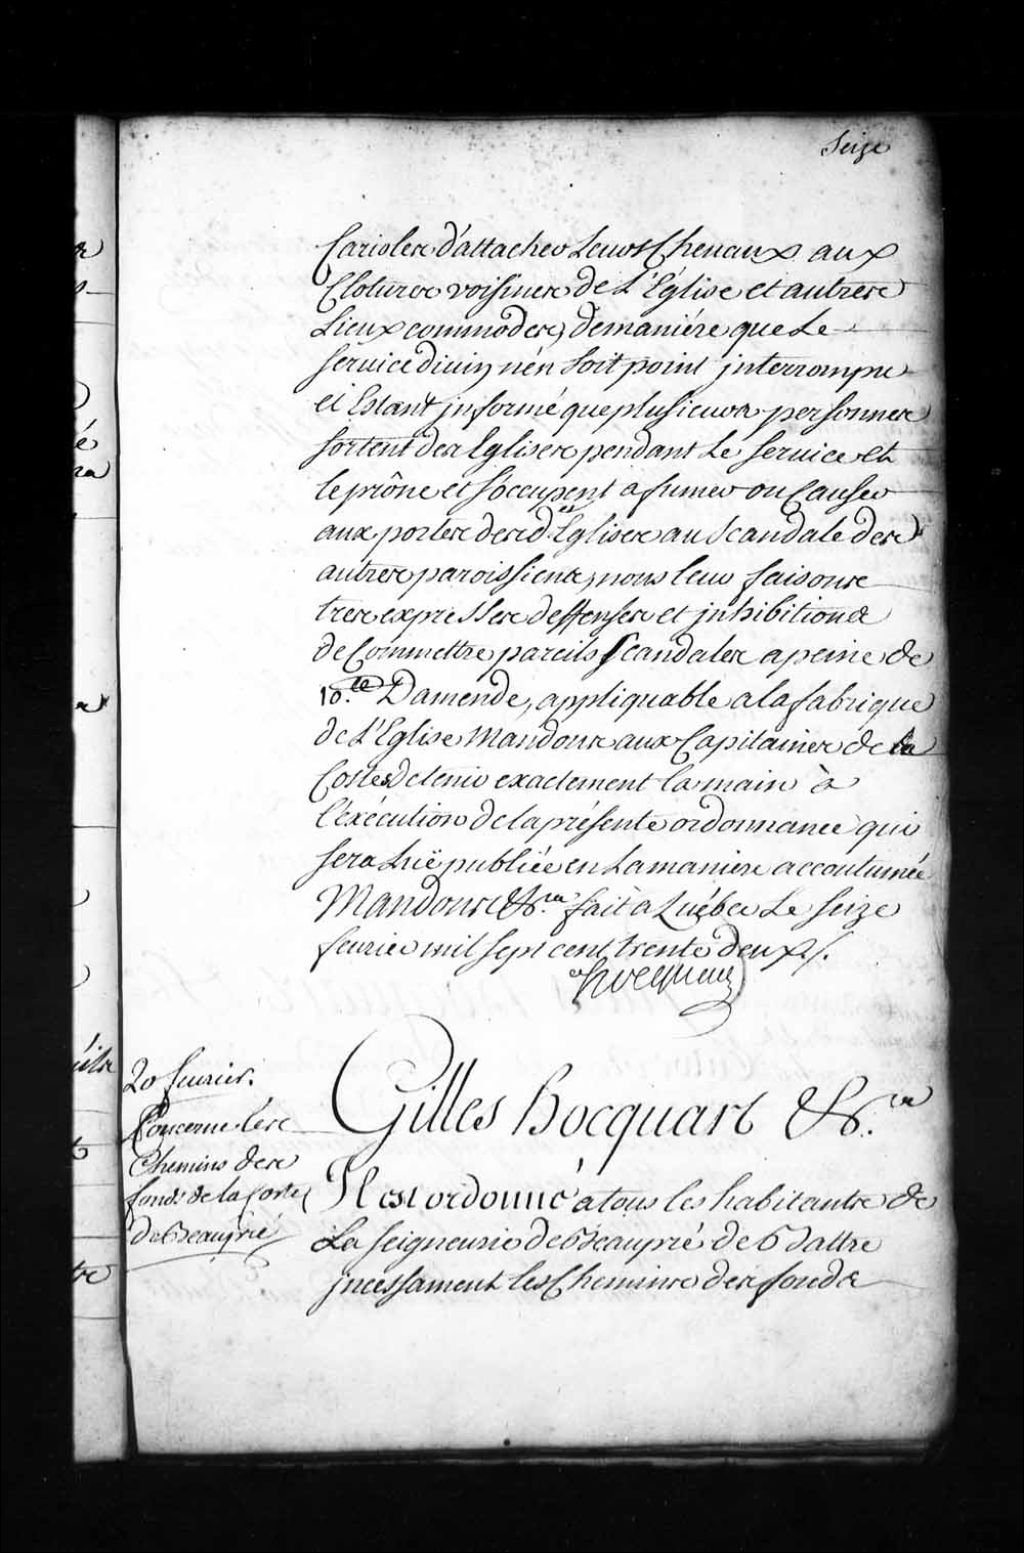 Seize
Carioles d'attacher Leurs Chevaux aux
Clotures voisines de L'Église et autres
Lieux commodes, de maniére que Le
service divin n'en soit point jnterrompu
et Estant jnformé que plusieurs personnes
sortent des Eglises pendant Le service et
le prône et s'occupent a fumer ou Causer
aux portes desd. es Eglises au Scandale des
autres paroissiens, nous leur faisons
tres expresses deffenses et jnhibitions
de Commettre pareils Scandales a peine de
10.te Damende, appliquable a la fabrique
de L'Eglise Mandons aux Capitaines de la
Costes de tenir exactement la main à
l'éxécution de la présente ordonnance qui
sera Luë publiée en La maniere accoutumée
Mandons &c.ra fait a Québec Le seize
feurier mil sept cent trente deux./.
Hocquart
20 feurier.
Concerne les
Chemins des
fonds de la Coste
de Beaupré
Gilles hocquart &c.ra
Il est ordonné a tous les habitants de
La seigneurie de Beaupré de Battre
jncessament les Chemins des fonds